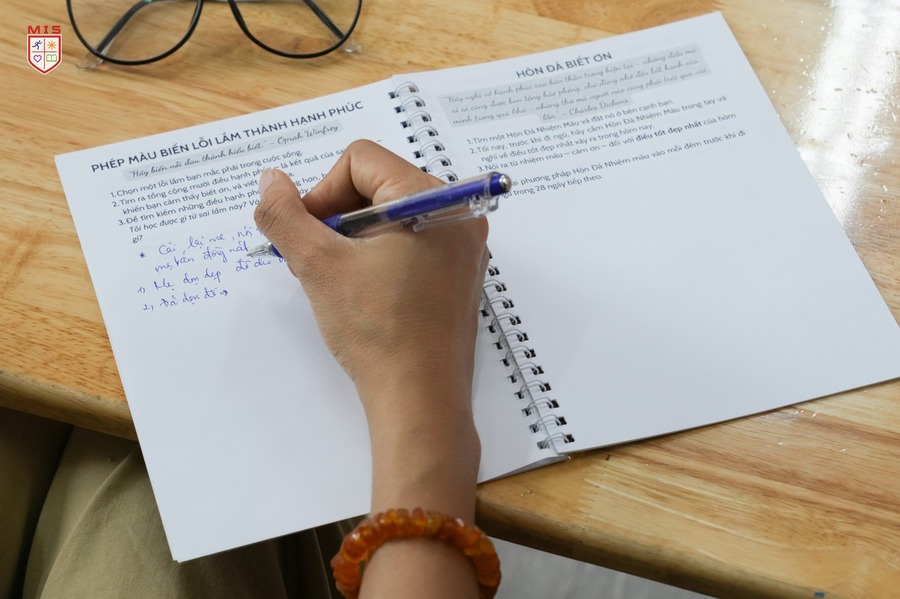 MIS
PHÉP MÀU BIẾN LỖI LẦM THÀNH HẠNH PHÚC
"Hãy biến nỗi đau thành hiểu biết." - Oprah Winfrey
1.Chọn một lỗi lầm bạn mắc phải trong cuộc sống.
2.Tìm ra tổng cộng mười điều hạnh phúc là kết quả của sai
khiến bạn cảm thấy biết ơn, và viết
3.Để tìm kiếm những điều hạnh phúc
Tôi học được gì từ sai lầm này?
gì?
* Cãi lại mẹ,
mẹ bán đồng nát
1, Mẹ dọn dẹp đồ
2, Đã dọn đồ
HÒN ĐÁ BIẾT ƠN
Hãy nghĩ về hạnh phúc của bản thân trong hiện tại - những điều mà
ai ai cũng được ban tặng hào phóng, chứ đừng nhớ đến bất hạnh của
mình trong quá khứ - những thứ mà người nào cũng phải trải qua vài
lần. - Charles Dickens
1.Tìm một Hòn Đá Nhiệm Màu và đặt nó ở bên cạnh bạn.
2.Tối nay, trước khi đi ngủ, hãy cầm Hòn Đá Nhiệm Màu trong tay và
nghĩ về điều tốt đẹp nhất xảy ra trong hôm nay.
3.Nói ra từ nhiệm màu – cảm ơn – đối với điều tốt đẹp nhất của hôm
phương pháp Hòn Đá Nhiệm màu vào mỗi đêm trước khi đi
trong 28 ngày tiếp theo.